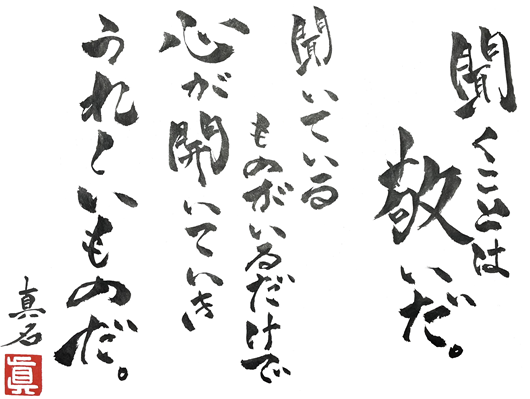 聞くことは
敬いだ。
聞いている
ものがいるだけで
心が開いていき
うれしいものだ。
真石
眞